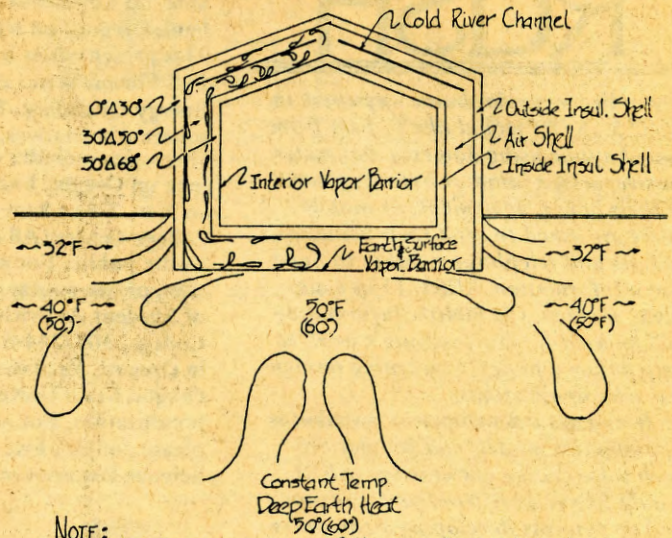 Cold River Channel
0°Δ30°
30°Δ50°
50°Δ68°
Outside Insul. Shell
Air Shell
Inside Insul Shell
Interior Vapor Barrior
Earth Surface
Vapor Barrior
32°F
32°F
40°F
(50°)
50°F
(60°)
40°F
(50°F)
Constant Temp.
Deep Earth Heat
50°(60°)
NOTE: